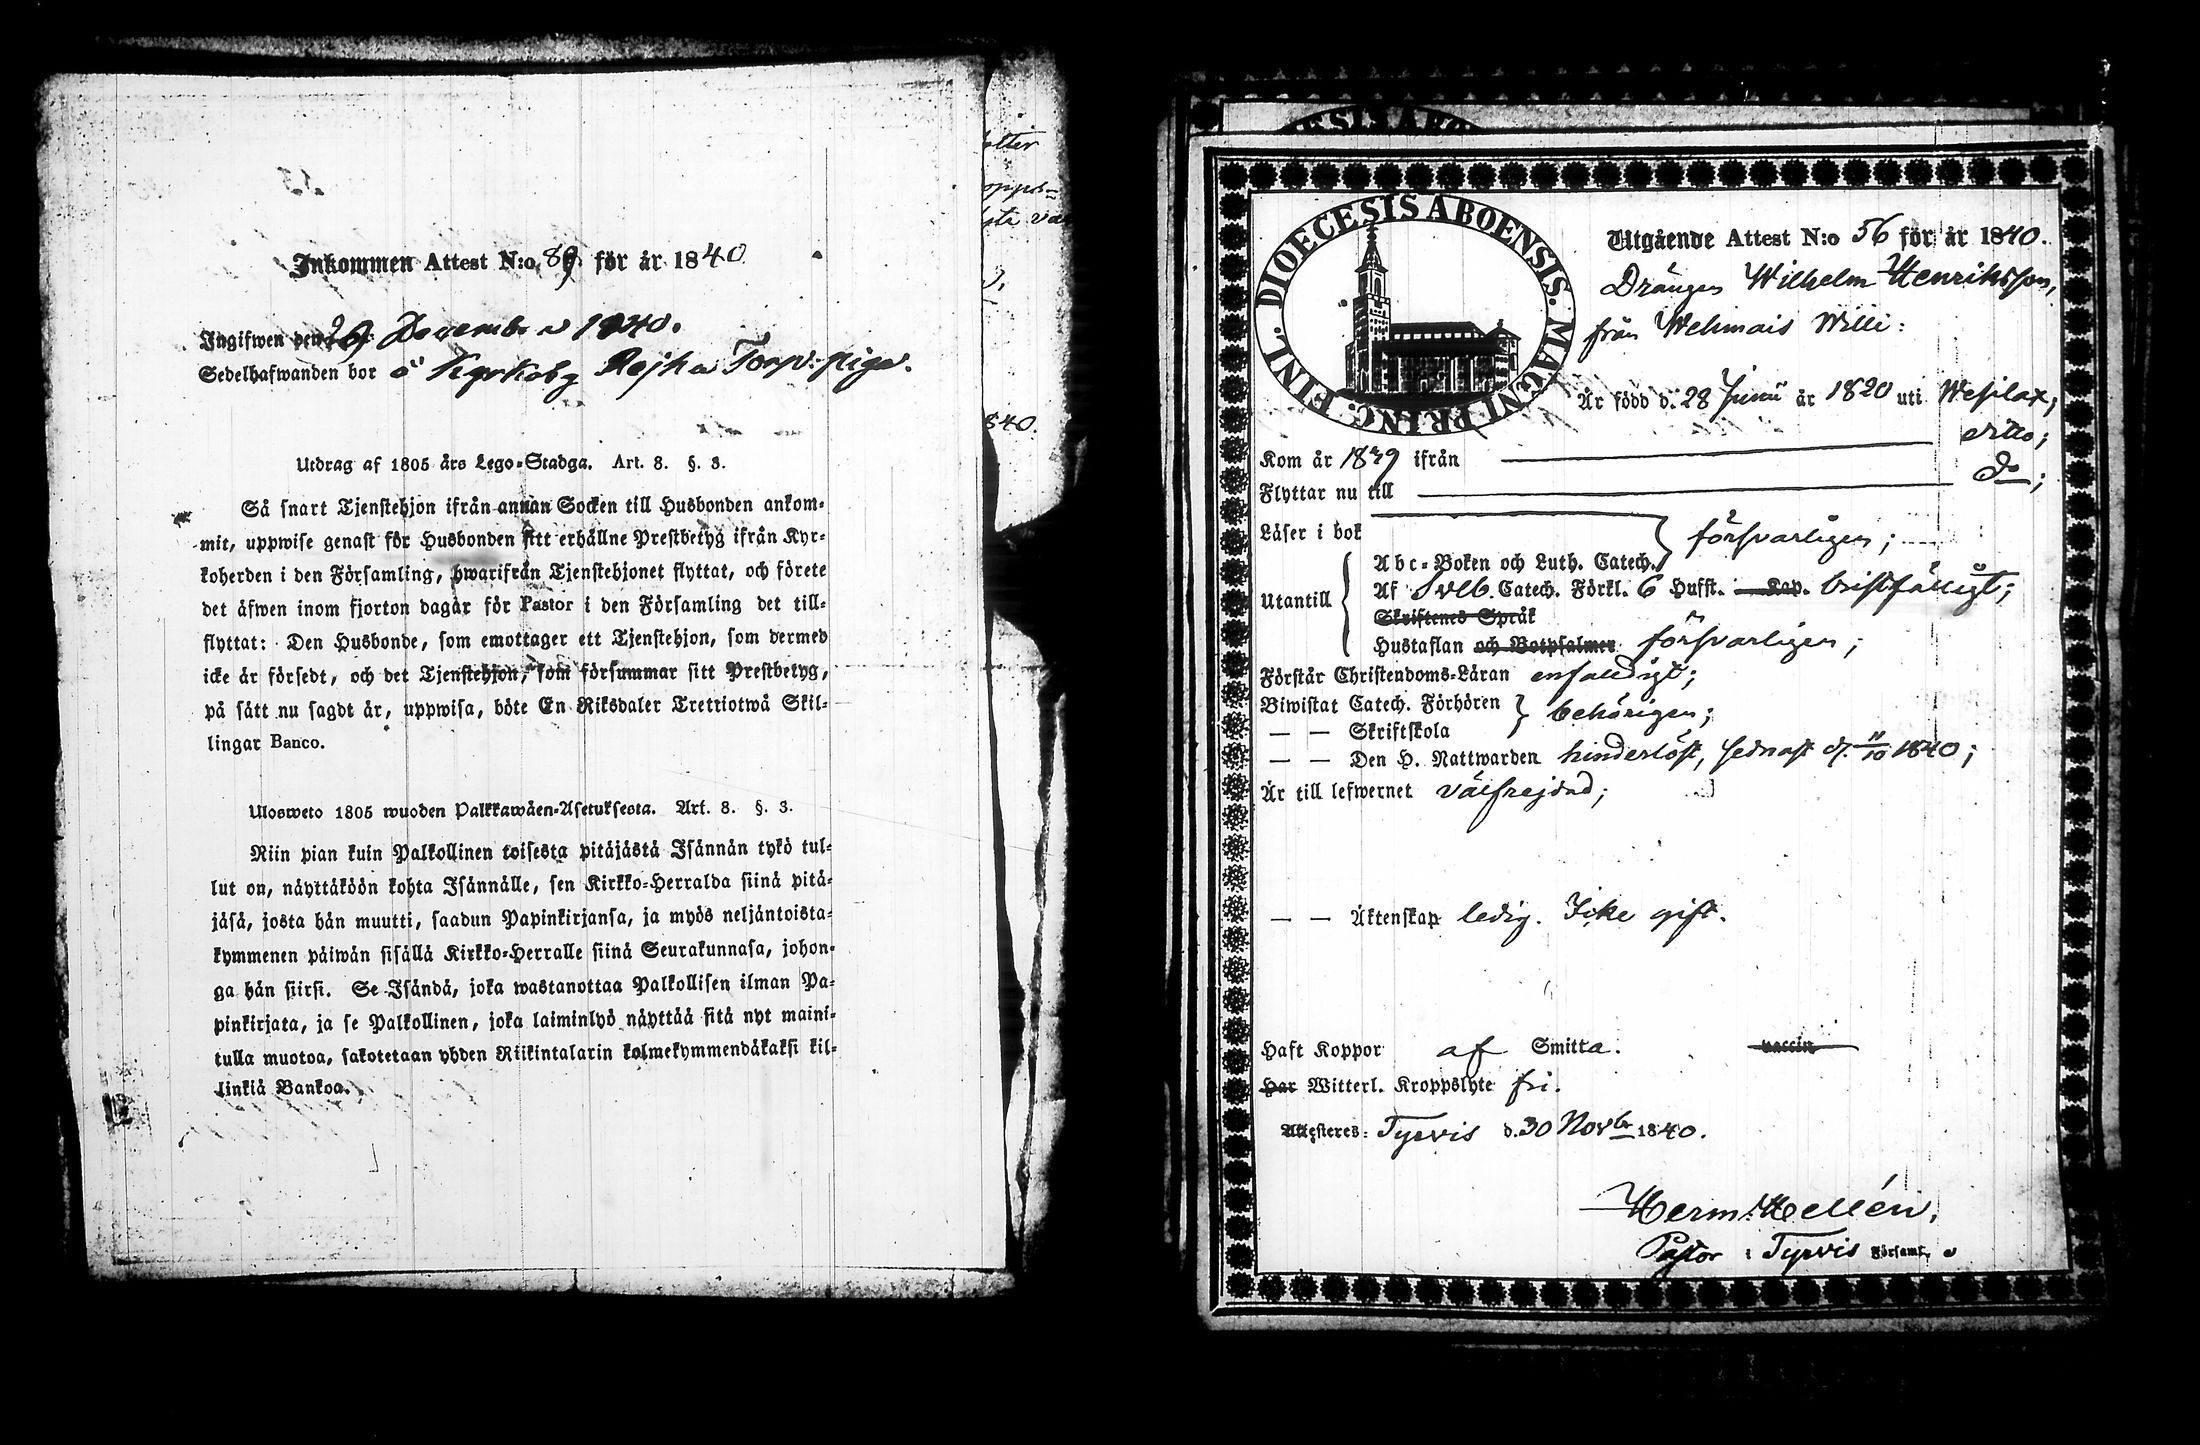 Inkommen Attest N:o 89 för år 1840
Ingifwen den 29 December 1840.
Sedelhafwanden bor å Kyrkoby Rejko Torp: piga.
Utdrag af 1805 års Lego-Stadga. Art. 8. §. 3.
Så snart Tjenstehjon ifrån annan Socken till Husbonden ankom-
mit, uppwise genast för Husbonden sitt erhållne Prestbetyg ifrån Kyr-
koherden i den Församling, hwarifrån Tjenstehjonet flyttat, och förete
det äfwen inom fjorton dagar för Pastor i den Församling det till-
flyttat: Den Husbonde, som emottager ett Tjenstehjon, som dermed
icke är försedt, och det Tjenstehjon, som försummar sitt Prestbetyg,
på sätt nu sagdt är, uppwisa, böte En Riksdaler Trettiotwå Skil-
lingar Banco.
Ulosweto 1805 wuoden Palkkawäen-Asetuksesta. Art. 8. §. 3.
Niin pian kuin Palkollinen toisesta pitäjästä Isännän tykö tul-
lut on, näyttäköön kohta Isännälle, sen Kirkko-Herralda siinä pitä-
jäsä, josta hän muutti, saadun Papinkirjansa, ja myös neljäntoista-
kymmenen päiwän sisällä Kirkko-Herralle siinä Seurakunnasa, johon-
ga hän siirsi. Se Isändä, joka wastanottaa Palkollisen ilman Pa-
pinkirjata, ja se Palkollinen, joka laiminlyö näyttää sitä nyt maini-
tulla muotoa, sakotetaan yhden Riikintalarin kolmekymmendäkaksi kil-
linkiä Bankoa.
840.
DIOECESIS ABOENSIS. MAGNI PRINC. FINL.
Utgående Attest N:o 56 för år 1840.
Drängen Wilhelm Henriksson,
från Wehmais Willi:
Är född d. 28 Junii år 1820 uti Wesilax,
Kom år 1839 ifrån ditto;
Flyttar nu till do;
Läser i bok försvarligen;
Abc-Boken och Luth. Catech.
Utantill Af Svb. Catech. Förkl. 6 Hufst. Kap. bristfälligt;
Skriftenes Språk
Hustaflan och Botpsalmer försvarligen;
Förstår Christendoms-Läran enfaldigt;
Biwistat Catech. Förhören behörigen;
— — Skriftskola
— — Den H. Nattwarden hinderlöst, sednast d. 11/10 1840;
Är till lefwernet välfrejdad;
— — Äktenskap ledig. Icke gift.
Haft Koppor af Smitta. vaccin
Har Witterl. Kroppslyte fri.
Attesteres: Tyrvis d. 30 Novbr 1840.
Herm: Hellén,
Pastor i Tyrvis Församl.